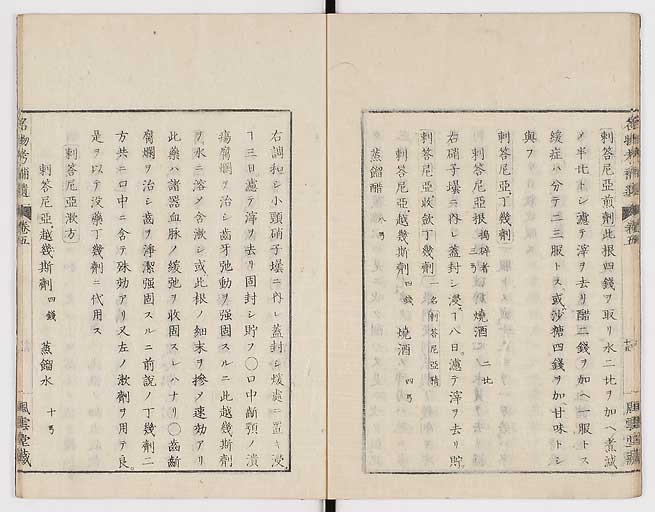 刺答尼亞煎劑此根四錢ヲ取リ水二比ヲ加ヘ煮減
ノ半ヒトシ濾テ滓ヲ去リ醋二錢ヲ加ヘ一服トス
緩症ハ分テ二三服トス或沙糖四錢ヲ加甘味トシ
與フ
刺答尼亞丁幾劑
刺答尼亞根 搗碎者 三弓 燒酒 二比
右硝子壜ニ內レ蓋封シ浸ㄱ八日濾テ滓ヲ去リ貯
刺答尼亞收斂丁幾劑 一名刺答尼亞精
刺答尼亞越幾斯劑 四錢 燒酒 四弓
蒸餾醋 八弓
右調和シ小頸硝子壜ニ內レ蓋封シ煖處ニ置キ浸
ㄱ三日濾テ滓ヲ去リ固封シ貯フ〇口中齗顎ノ潰
瘍腐爛ヲ治シ齒牙弛動ヲ强固スルニ此越幾斯劑
ヲ水ニ溶メ含漱シ或此根ノ細末ヲ摻メ速効アリ
此藥ハ諸器血脉ノ緩弛ヲ收固スレハナリ〇齒齗
腐爛ヲ治シ齒ヲ淨潔强固スルニ前說ノ丁幾劑二
方共ニ口中ニ含テ殊効アリ又左ノ漱劑ヲ用テ良
是ヲ以テ沒藥丁幾劑ニ代用ス
刺答尼亞漱方
刺答尼亞越幾斯劑 四錢 蒸餾水 十弓
名物考補遺 卷五
風雲堂藏